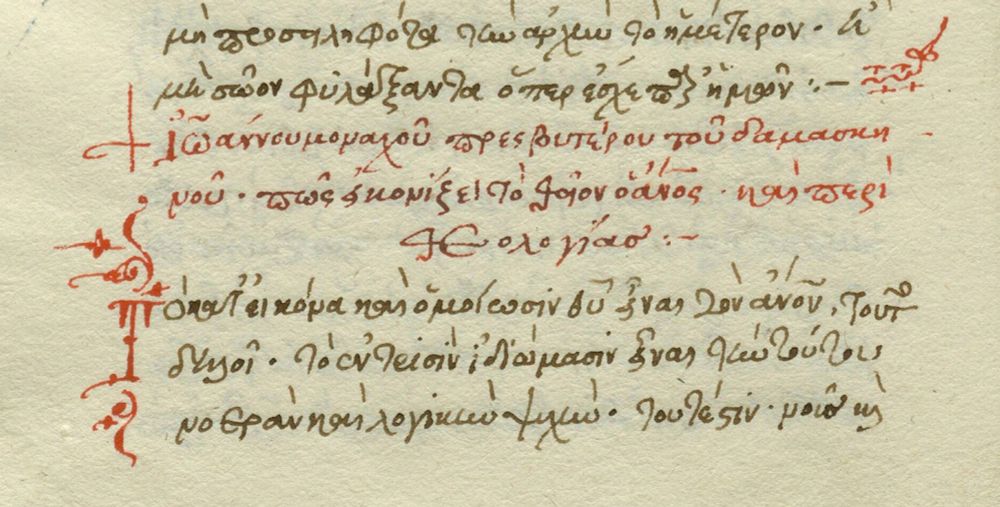 μὴ προσειληφότα τὴν ἀρχὴν τὸ ἡμέτερον· ἢ
μὴ σῶον φυλάξαντα ὅπερ ἐξ ἡμῶν :–
Ἰωάννου μοναχοῦ πρεσβυτέρου τοῦ δαμασκη
νοῦ· πῶς εἰκονίζει τὸ θεῖον ὁ ἄνος· καὶ περὶ
θεολογίας :–
Τὸ κατ' εἰκόνα καὶ ὁμοίωσιν θῦ εἶναι τὸν ἄνον, τοῦτο
δηλοῖ· τὸ ἐν τρισὶν ἰδιώμασιν εἶναι τὴν τούτου
νοερὰν καὶ λογικὴν ψυχήν· τουτέστιν· νοῦν καὶ